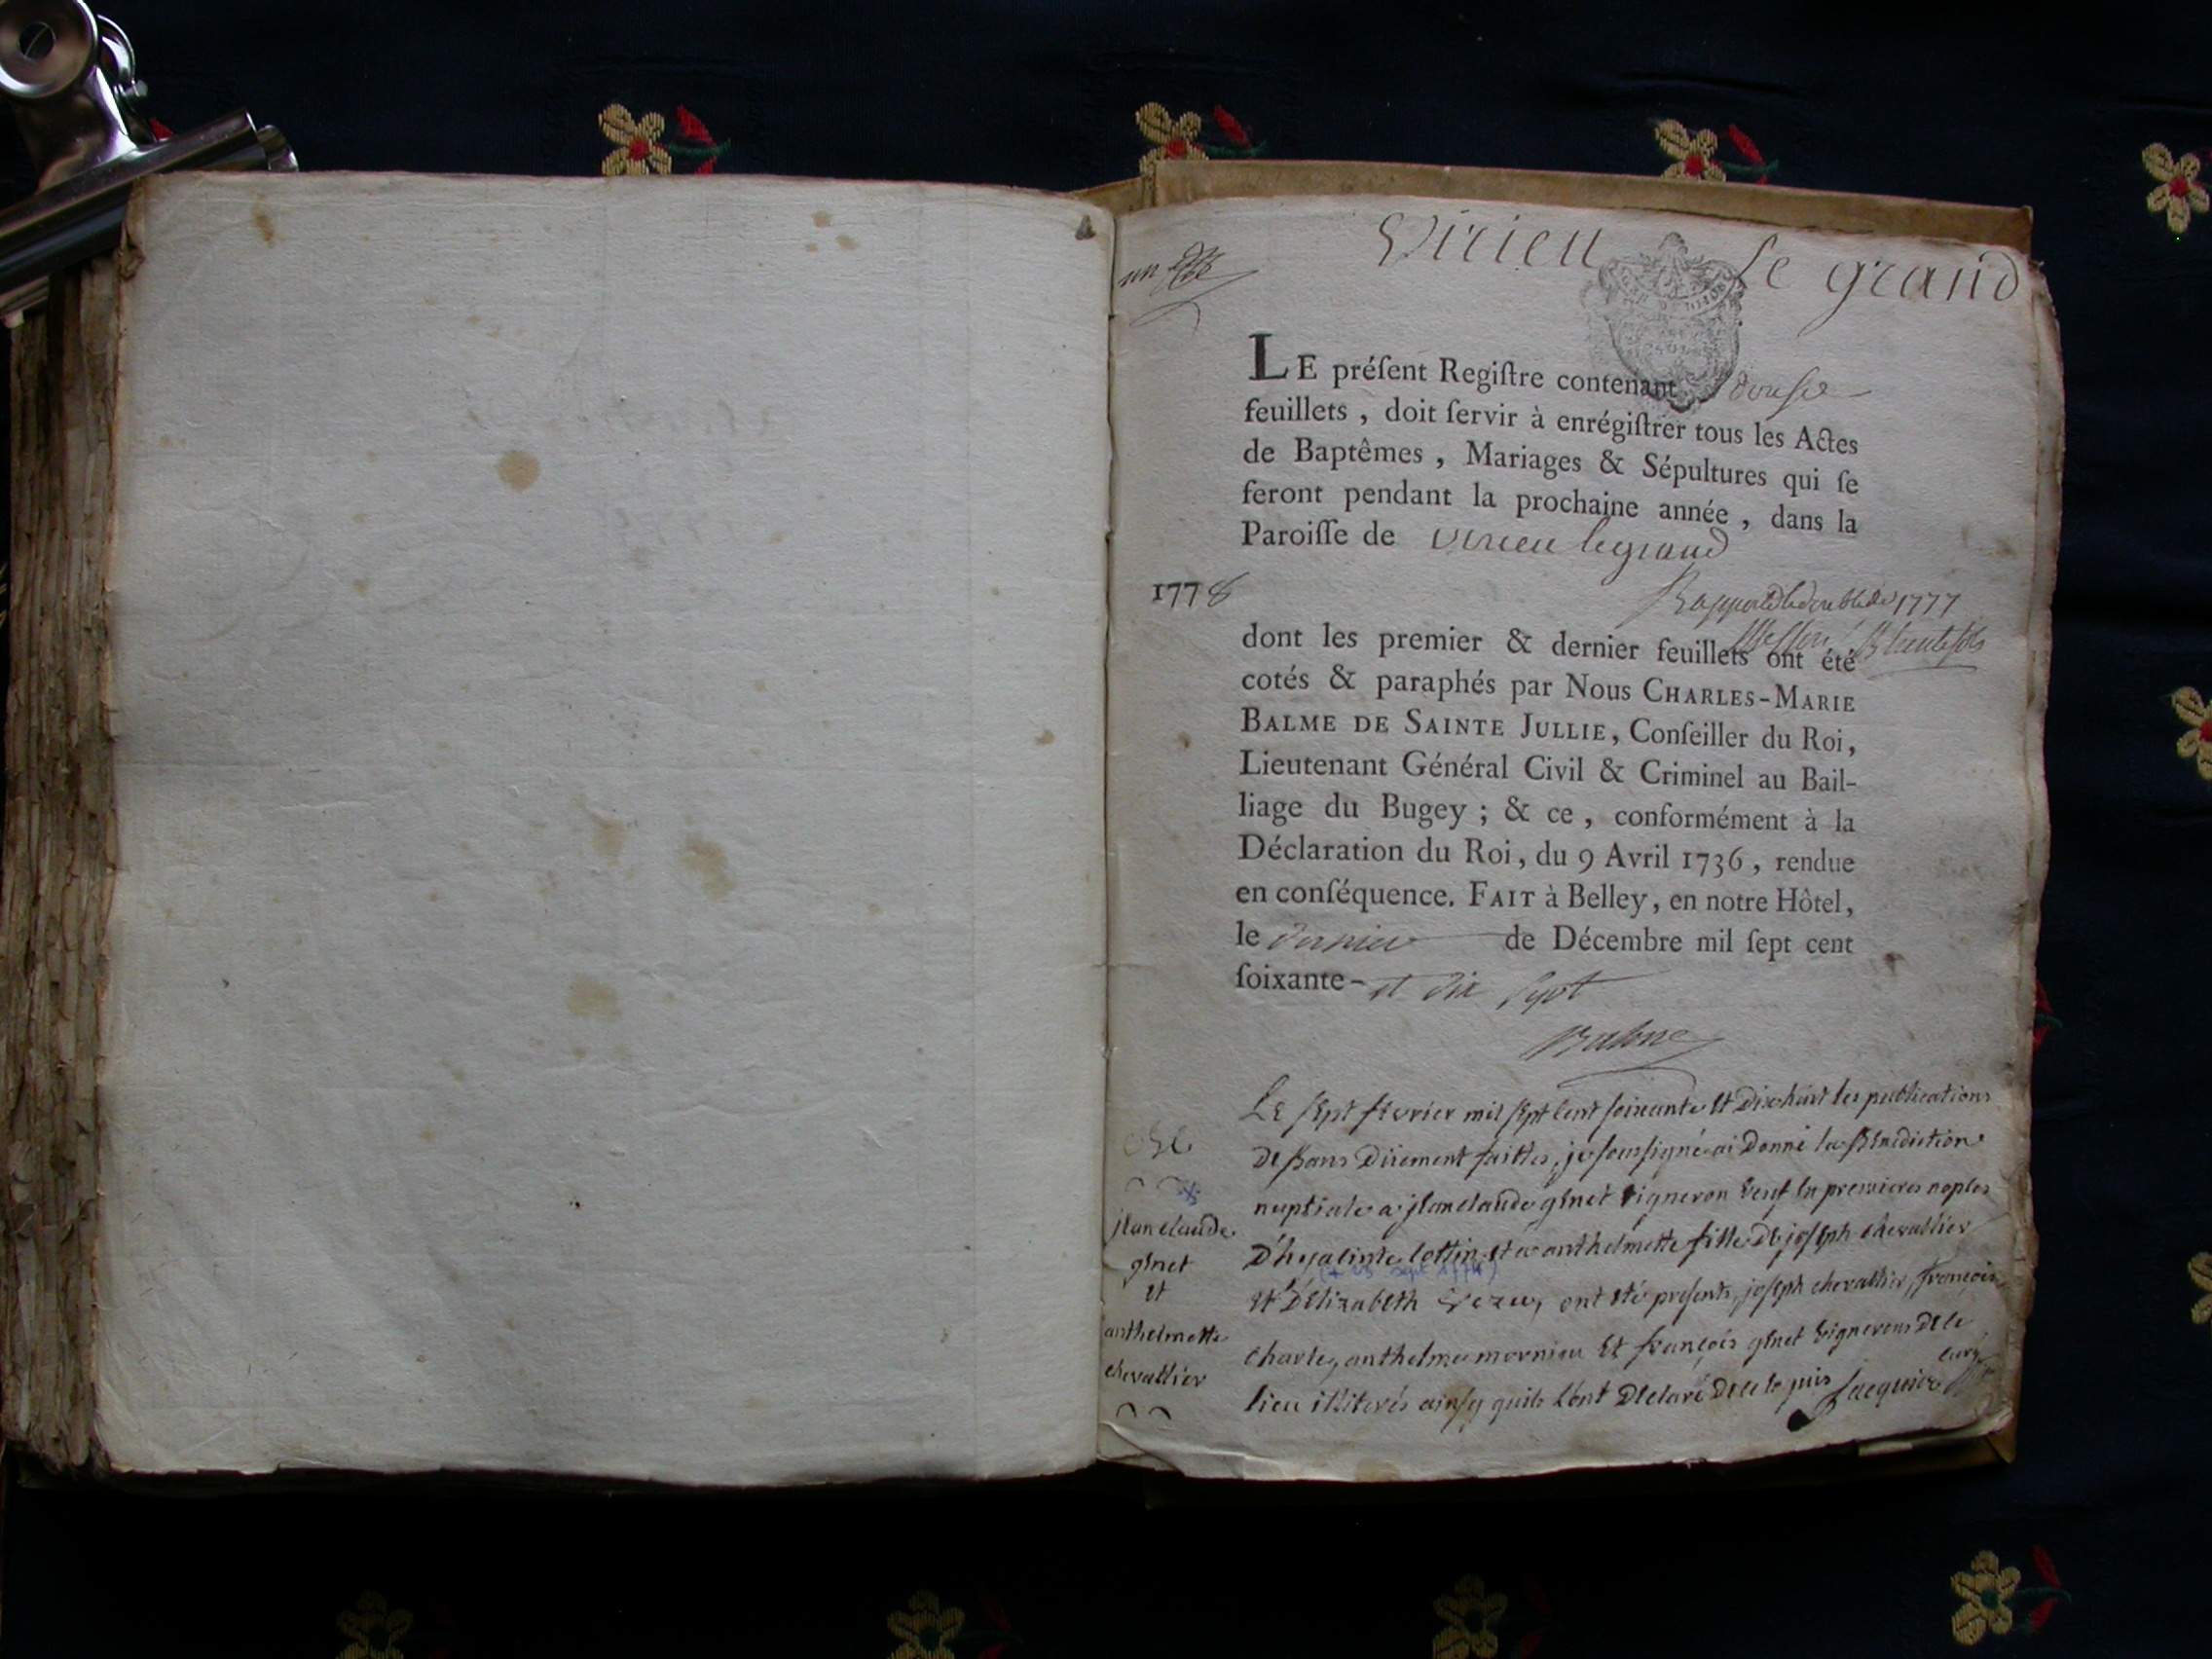 un
Virieu le grand
LE préſent Regiſtre contenant douſe
feuillets, doit ſervir à enrégiſtrer tous les Actes
de Baptêmes, Mariages & Sépultures qui ſe
feront pendant la prochaine année, dans la
Paroiſſe de virieu legrand
1778
Rapporté le double de 1777
dont les premier & dernier feuillets ont été
cotés & paraphés par Nous CHARLES-MARIE
BALME DE SAINTE JULLIE, Conſeiller du Roi,
Lieutenant Général Civil & Criminel au Bail-
liage du Bugey; & ce, conformément à la
Déclaration du Roi, du 9 Avril 1736, rendue
en conſéquence. FAIT à Belley, en notre Hôtel,
le dernier de Décembre mil ſept cent
ſoixante- et dix ſept
Balme
jean claude
ginet
et
anthelmette
chevallier
Le sept fevrier mil sept cent soixante et dix huit les publications
de Bans duement faittes, je soussigné ai donné la Bénédiction
nuptiale a jean claude ginet vigneron veuf en premieres noples
D'hyacinte lottin et a anthelmette fille de joseph chevallier
et D'Elizabeth vezu, ont été presents, joseph chevallier, françois
charle, anthelme morniou et françois ginet vignerons de ce
lieu illiterés ainsy quils l'ont declaré de ce le puis Jacquier curé